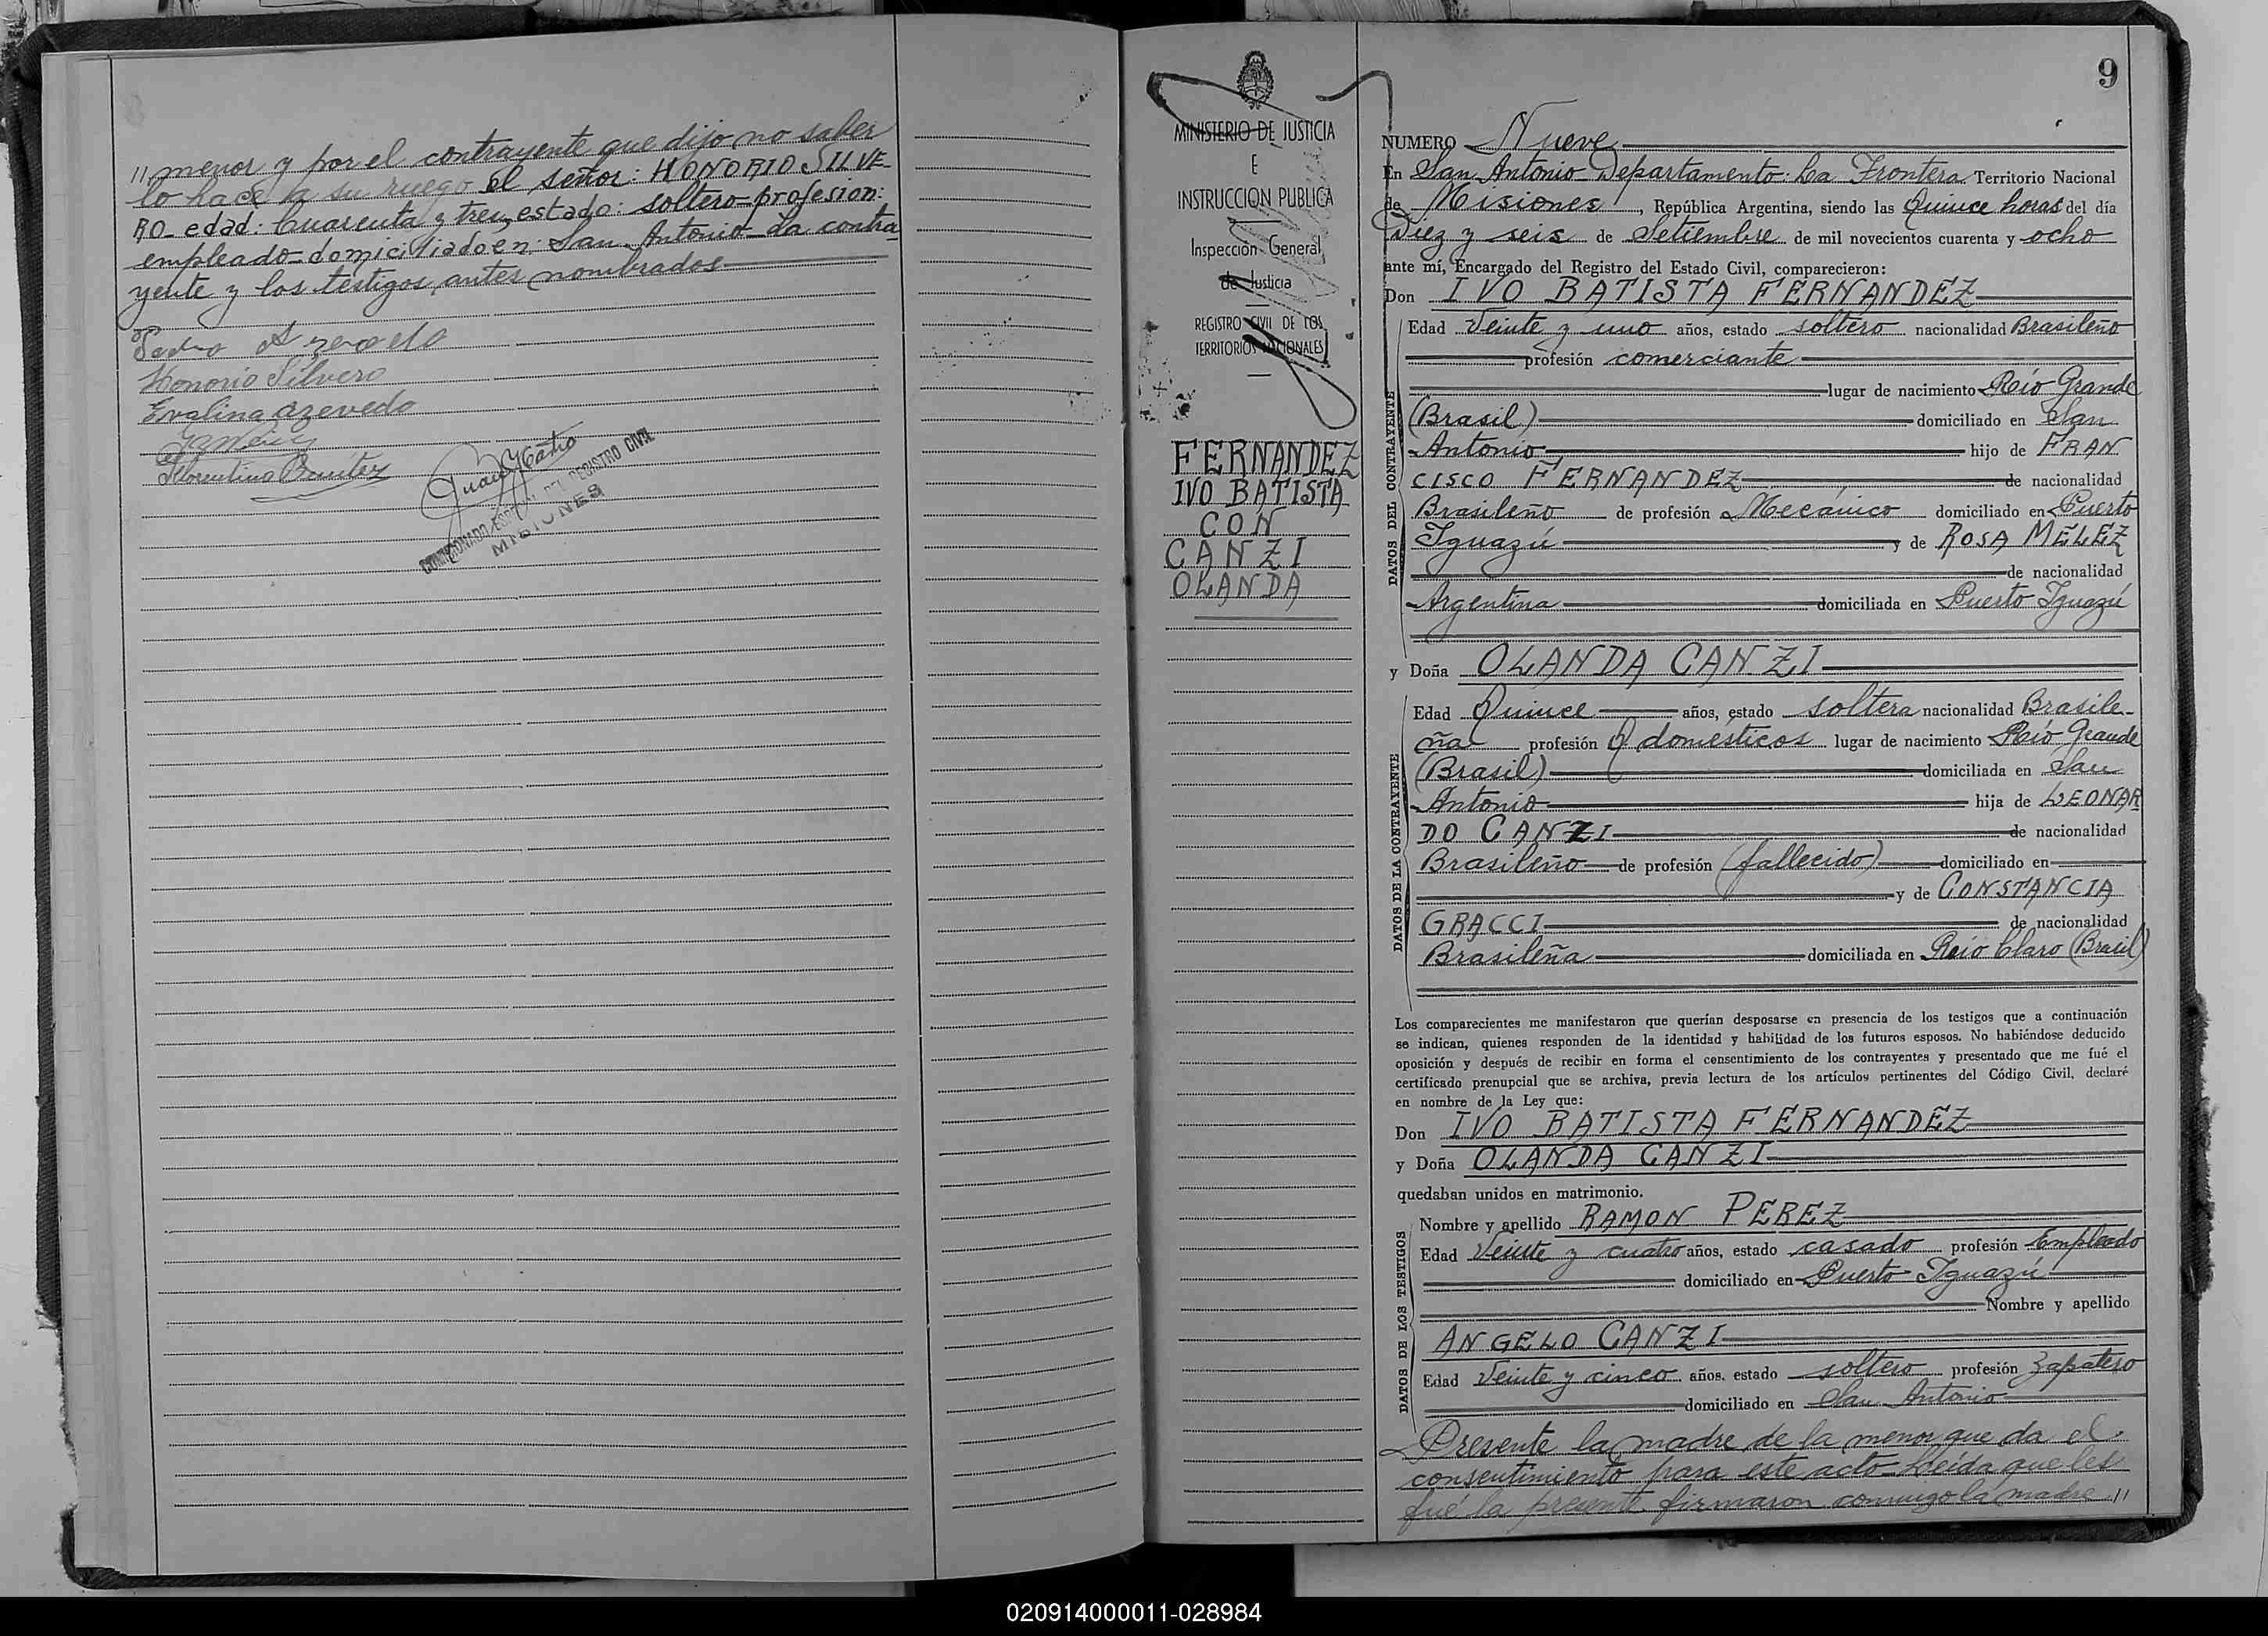 "menor y por el contrayente que dijo no saber
lo hace a su ruego el señor: HONORIO SILVE-
RO- edad: Cuarenta y tres, estado: soltero- profesion:
empleado- domiciliado en: San Antonio- La contra
yente y los testigos antes nombrados
Pedro Azevedo
Honorio Silvero
Evalina Azevedo
Florentino Benitez
COMISIONADO ESPECIAL DEL REGISTRO CIVIL
MISIONES
MINISTERIO DE JUSTICIA
E
INSTRUCCION PUBLICA
Inspección General
de Justicia
REGISTRO CIVIL DE LOS
TERRITORIOS NACIONALES
FERNANDEZ
IVO BATISTA
CON
CANZI
OLANDA
9
NUMERO Nueve
En San Antonio- Departamento: La Frontera Territorio Nacional
de Misiones, República Argentina, siendo las Quince horas del día
Diez y seis de Setiembre de mil novecientos cuarenta y ocho
ante mí, Encargado del Registro del Estado Civil, comparecieron:
Don IVO BATISTA FERNANDEZ
DATOS DEL CONTRAYENTE
Edad Veinte y uno años, estado soltero nacionalidad Brasileño
profesión comerciante
lugar de nacimiento Río Grande
(Brasil) domiciliado en San
Antonio hijo de FRAN
CISCO FERNANDEZ de nacionalidad
Brasileño de profesión Mecánico domiciliado en Puerto
Iguazú y de ROSA MÉLEZ
de nacionalidad
Argentina domiciliada en Puerto Iguazú
y Doña OLANDA CANZI
DATOS DE LA CONTRAYENTE
Edad Quince años, estado soltera nacionalidad Brasile-
ña profesión Q domésticos lugar de nacimiento Río Grande
(Brasil) domiciliada en San
Antonio hija de LEONAR
DO CANZI de nacionalidad
Brasileño de profesión (fallecido) domiciliado en
y de CONSTANCIA
GRACCI de nacionalidad
Brasileña domiciliada en Río Claro (Brasil)
Los comparecientes me manifestaron que querían desposarse en presencia de los testigos que a continuación
se indican, quienes responden de la identidad y habilidad de los futuros esposos. No habiéndose deducido
oposición y después de recibir en forma el consentimiento de los contrayentes y presentado que me fué el
certificado prenupcial que se archiva, previa lectura de los artículos pertinentes del Código Civil, declaré
en nombre de la Ley que:
Don IVO BATISTA FERNANDEZ
y Doña OLANDA CANZI
quedaban unidos en matrimonio.
DATOS DE LOS TESTIGOS
Nombre y apellido RAMON PEREZ
Edad Veinte y cuatro años, estado casado profesión Empleado
domiciliado en Puerto Iguazú
Nombre y apellido
ANGELO CANZI
Edad Veinte y cinco años, estado soltero profesión Zapatero
domiciliado en San Antonio
Presente la madre de la menor que da el
consentimiento para este acto- Leída que les
fué la presente firmaron conmigo la madre "
020914000011-028984